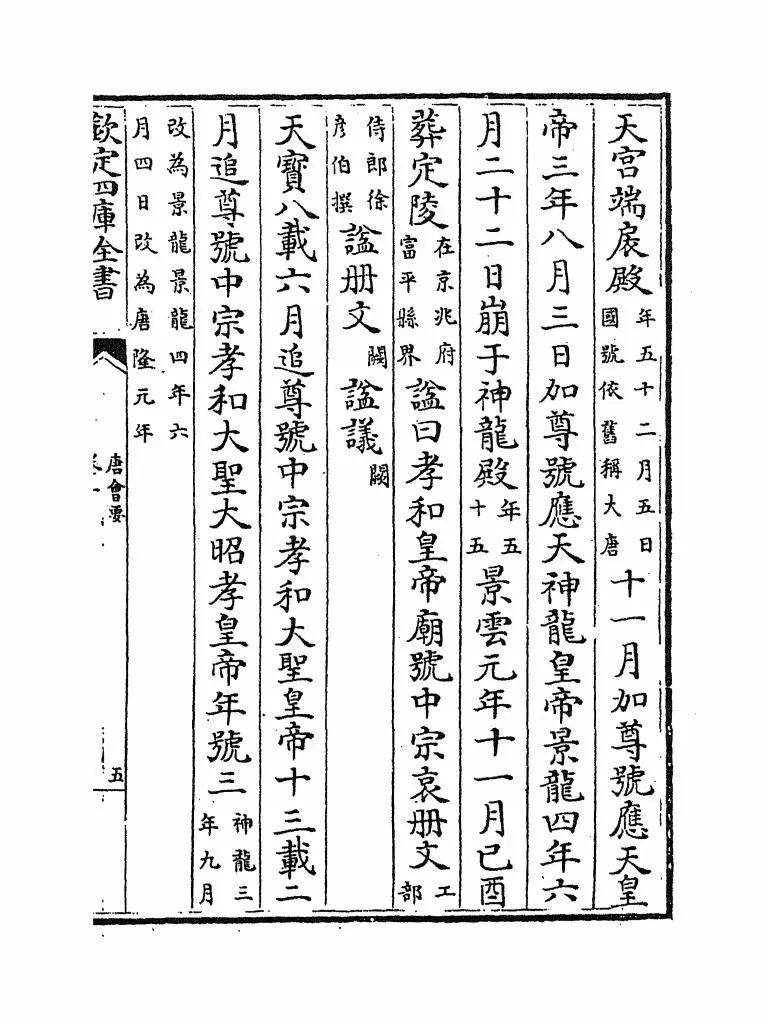 天宮端扆殿年五十二月五日國號依舊稱大唐十一月加尊號應天皇
帝三年八月三日加尊號應天神龍皇帝景龍四年六
月二十二日崩于神龍殿年五十五景雲元年十一月已酉
葬定陵在京兆府富平縣界諡曰孝和皇帝廟號中宗哀册文工部
侍郎徐彦伯撰諡册文闕諡議闕
天寳八載六月追尊號中宗孝和大聖皇帝十三載二
月追尊號中宗孝和大聖大昭孝皇帝年號三神龍三年九月
改為景龍景龍四年六月四日改為唐隆元年
欽定四庫全書
唐會要
五